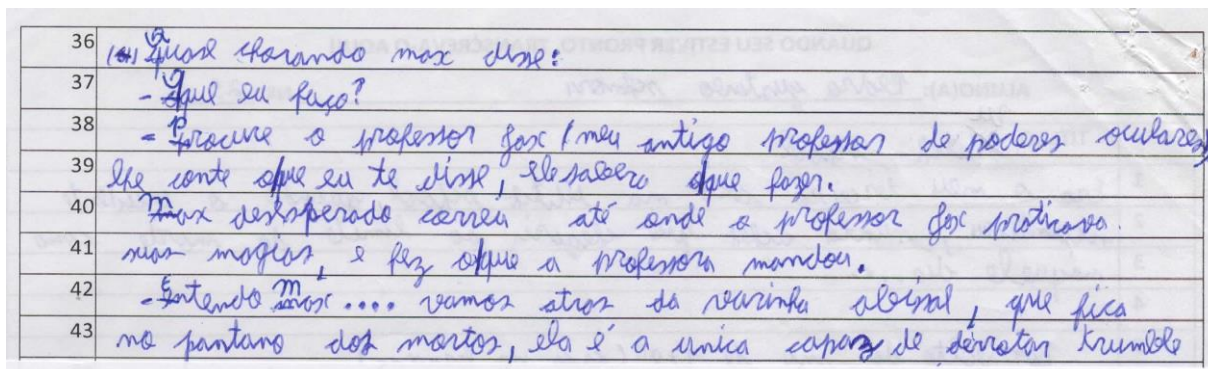 36 Quase chorando max disse:
37 - Oque eu faço?
38 - Procure o professor fox/meu antigo professor de poderes oculares,
39 lhe conte o que eu te disse, ele sabera o que fazer.
40 Max desesperado correu até onde o professor fox praticava
41 suas magias, e fez o que a professora mandou.
42 - Entendo Max.... vamos atras da varinha abissal, que fica
43 no pantano dos mortos, ela é a unica capaz de derrotar trumble